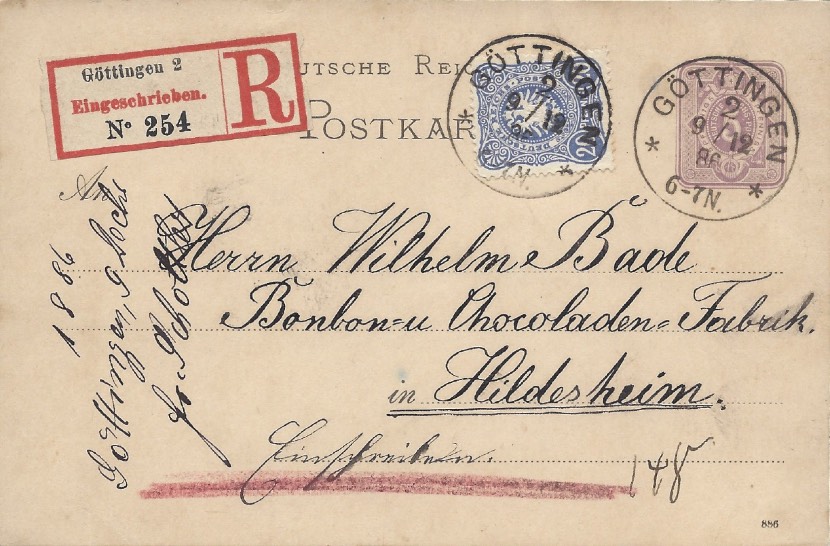 Göttingen 2
Eingeschrieben.
No 254
R
UTSCHE REI
POSTKAR
GÖTTINGEN
2
9/12
* *
20
GÖTTINGEN
2
9/12
86
6-7N.
* *
An
Herrn Wilhelm Bade
Bonbon=u Chocoladen=Fabrik.
in Hildesheim.
Einschreiben.
148
1886
Göttingen, 9 Dec
886